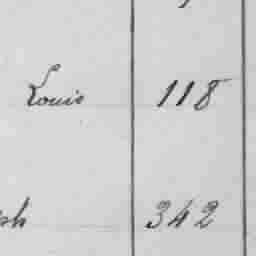 Louis 118
ph 342